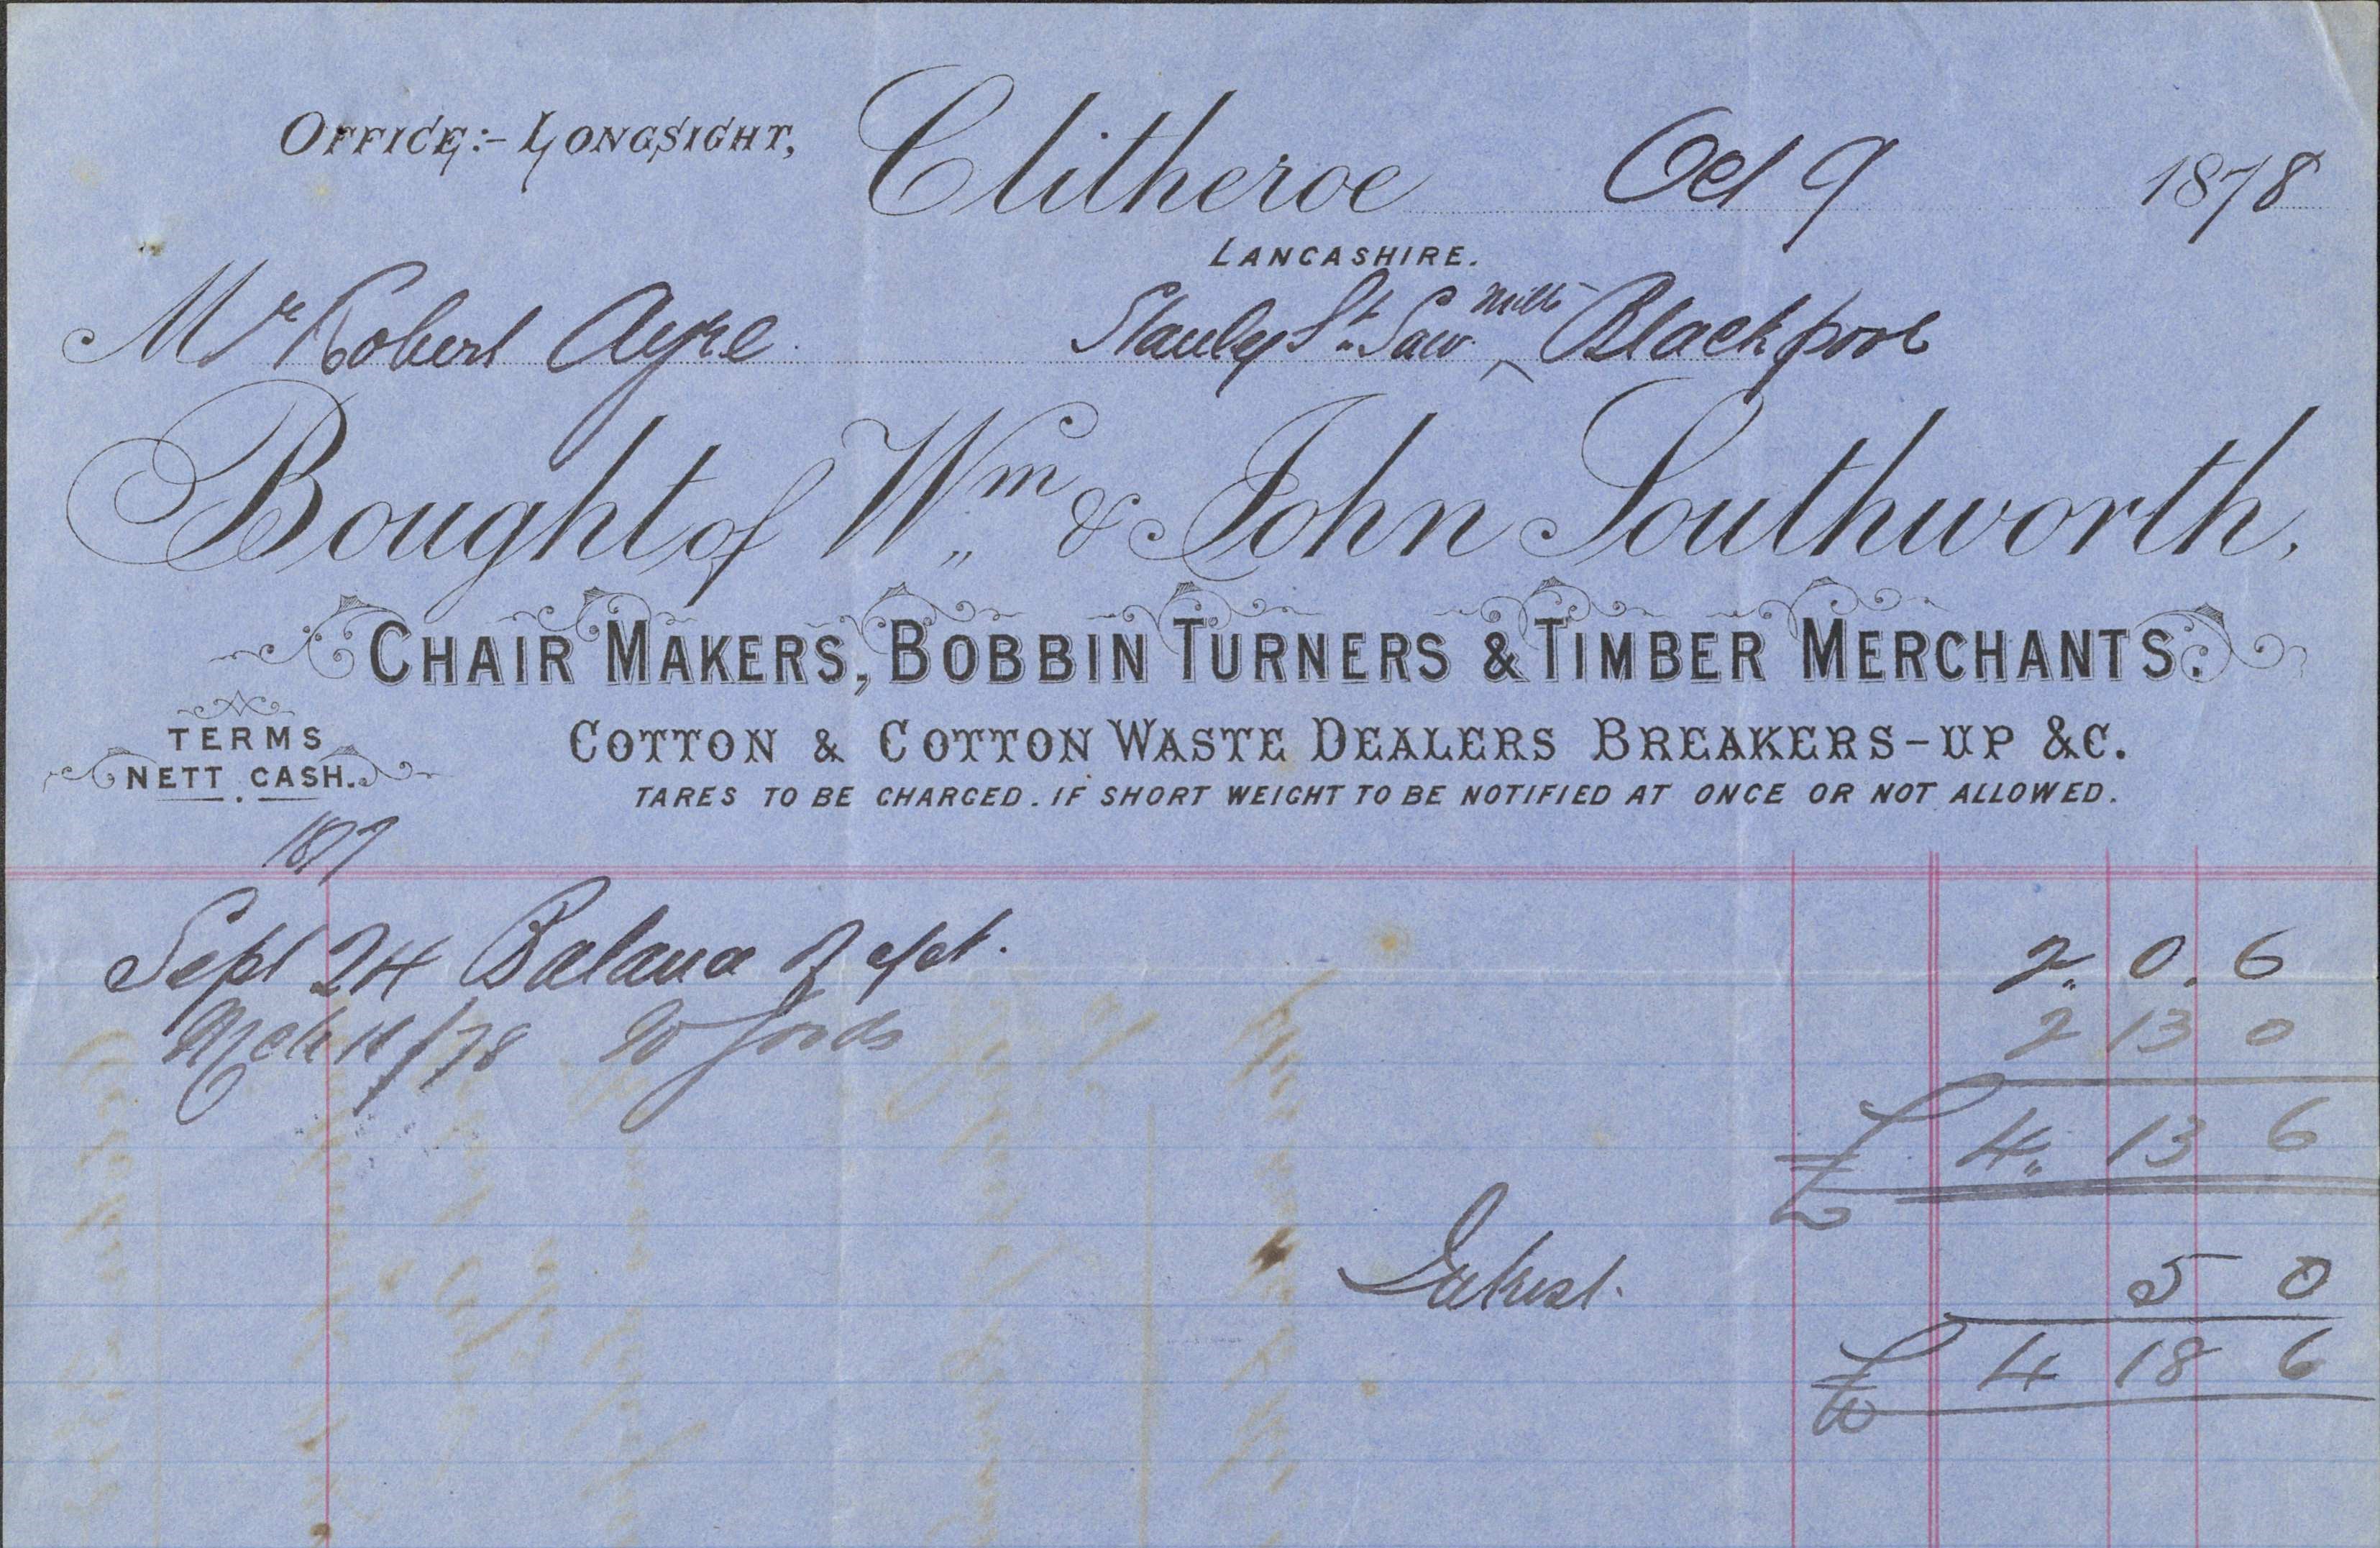 OFFICE:- LONGSIGHT, Clitheroe Oct 9 1878
LANCASHIRE.
Mr Robert Ayre Stanley St. Saw Mills Blackpool
Bought of Wm & John Southworth,
CHAIR MAKERS, BOBBIN TURNERS & TIMBER MERCHANTS.
TERMS
NETT CASH.
COTTON & COTTON WASTE DEALERS BREAKERS-UP &C.
TARES TO BE CHARGED. IF SHORT WEIGHT TO BE NOTIFIED AT ONCE OR NOT ALLOWED.
1877
Sept 24 Balance of a/ct. 2 " 0 . 6
Mch 18/78 To Goods 2 13 0
£ 4 " 13 6
Interest. 5 0
£ 4 18 6